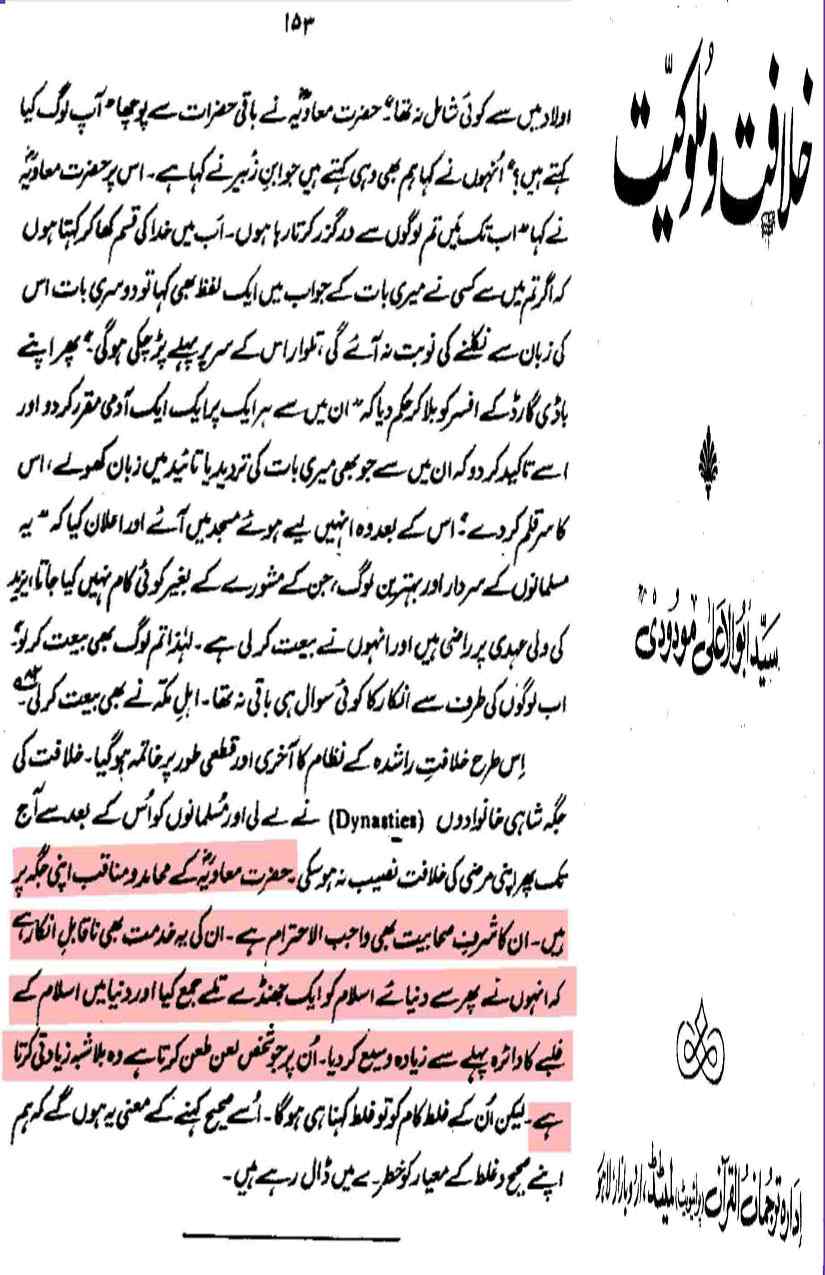 ۱۵۳
اولاد میں سے کوئی شامل نہ تھا"۔ حضرت معاویہؓ نے باقی حضرات سے پوچھا "آپ لوگ کیا
کہتے ہیں؟" اُنہوں نے کہا ہم بھی وہی کہتے ہیں جو ابنِ زُبیر نے کہا ہے۔ اس پر حضرت معاویہؓ
نے کہا "اب تک مَیں تم لوگوں سے درگزر کرتا رہا ہوں۔ اَب میں خدا کی قسم کھا کر کہتا ہوں
کہ اگر تم میں سے کسی نے میری بات کے جواب میں ایک لفظ بھی کہا تو دوسری بات اس
کی زبان سے نکلنے کی نوبت نہ آئے گی، تلوار اس کے سر پر پہلے پڑ چکی ہوگی۔" پھر اپنے
باڈی گارڈ کے افسر کو بلا کر حکم دیا کہ "ان میں سے ہر ایک پر ایک ایک آدمی مقرر کر دو اور
اسے تاکید کر دو کہ ان میں سے جو بھی میری بات کی تردید یا تائید میں زبان کھولے، اس
کا سر قلم کر دے"۔ اس کے بعد وہ انہیں لیے ہوئے مسجد میں آئے اور اعلان کیا کہ "یہ
مسلمانوں کے سردار اور بہترین لوگ، جن کے مشورے کے بغیر کوئی کام نہیں کیا جاتا، یزید
کی ولی عہدی پر راضی ہیں اور انہوں نے بیعت کر لی ہے۔ لہٰذا تم لوگ بھی بیعت کر لو"۔
اب لوگوں کی طرف سے انکار کا کوئی سوال ہی باقی نہ تھا۔ اہلِ مکہ نے بھی بیعت کر لی۔
اِس طرح خلافتِ راشدہ کے نظام کا آخری اور قطعی طور پر خاتمہ ہو گیا۔ خلافت کی
جگہ شاہی خانوادوں (Dynasties) نے لے لی اور مُسلمانوں کو اُس کے بعد سے آج
تک پھر اپنی مرضی کی خلافت نصیب نہ ہو سکی۔ حضرت معاویہؓ کے محامد و مناقب اپنی جگہ پر
ہیں۔ ان کا شرفِ صحابیت بھی واجب الاحترام ہے۔ ان کی یہ خدمت بھی ناقابلِ انکار ہے
کہ انہوں نے پھر سے دنیائے اسلام کو ایک جھنڈے تلے جمع کیا اور دنیا میں اسلام کے
غلبے کا دائرہ پہلے سے زیادہ وسیع کر دیا۔ اُن پر جو شخص لعن طعن کرتا ہے وہ بلا شبہ زیادتی کرتا
ہے۔ لیکن اُن کے غلط کام کو تو غلط کہنا ہی ہوگا۔ اُسے صحیح کہنے کے معنی یہ ہوں گے کہ ہم
اپنے صحیح و غلط کے معیار کو خطرے میں ڈال رہے ہیں۔
خلافت و ملوکیّت
سیّد ابوالاعلیٰ مودُودیؒ
اِدارہ ترجمانُ القرآن (پرائیویٹ) لمیٹڈ، اُردو بازار لاہور